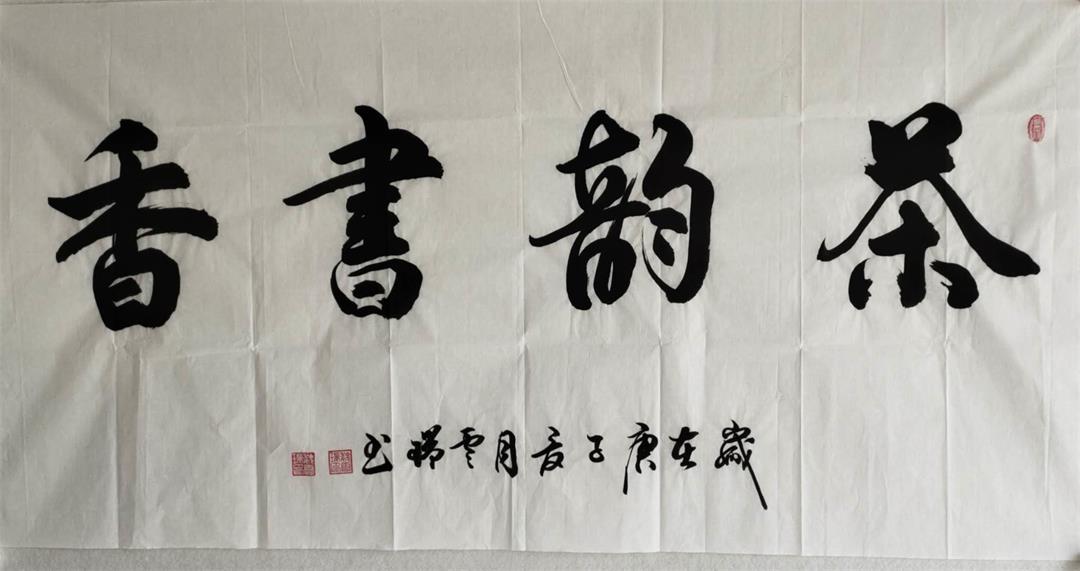 茶韵書香
歲在庚子夏月雲瑞书